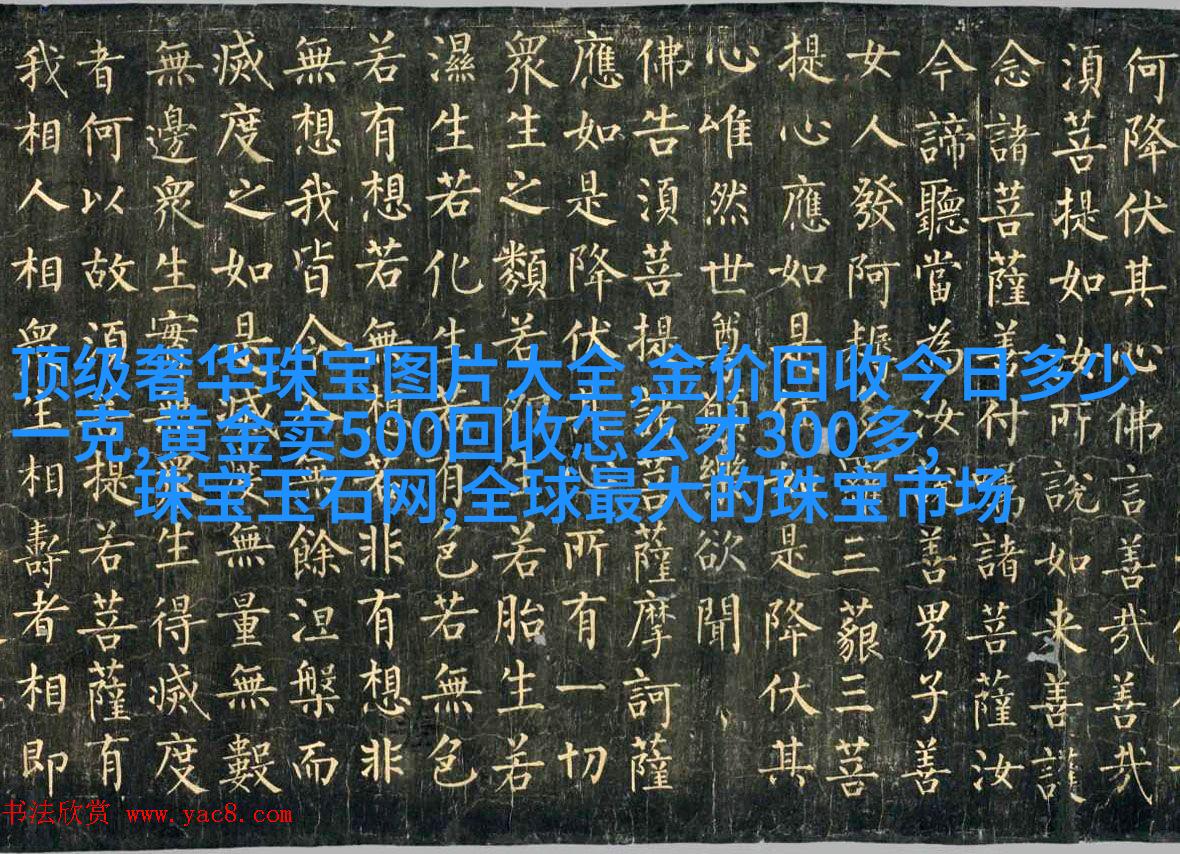 何降伏其心佛言善哉善哉
須菩提如汝所說如来善護
念諸菩薩善付囑諸菩薩汝
今諦聽當為汝說善男子善
女人發阿耨多羅三藐三菩
提心應如是住如是降伏其
心唯然世尊願樂欲聞
佛告須菩提諸菩薩摩訶薩
應如是降伏其心所有一切
衆生之類若卵生若胎生若
濕生若化生若有色若無色
若有想若無想若非有想非
無想我皆令入無餘涅槃而
滅度之如是滅度無量無數
無邊衆生實無衆生得滅度
者何以故須菩提若菩薩有
我相人相衆生相壽者相即
顶级奢华珠宝图片大全,金价回收今日多少
一克,黄金卖500回收怎么才300多,
珠宝玉石网,全球最大的珠宝市场
书法欣赏 www.yac8.com